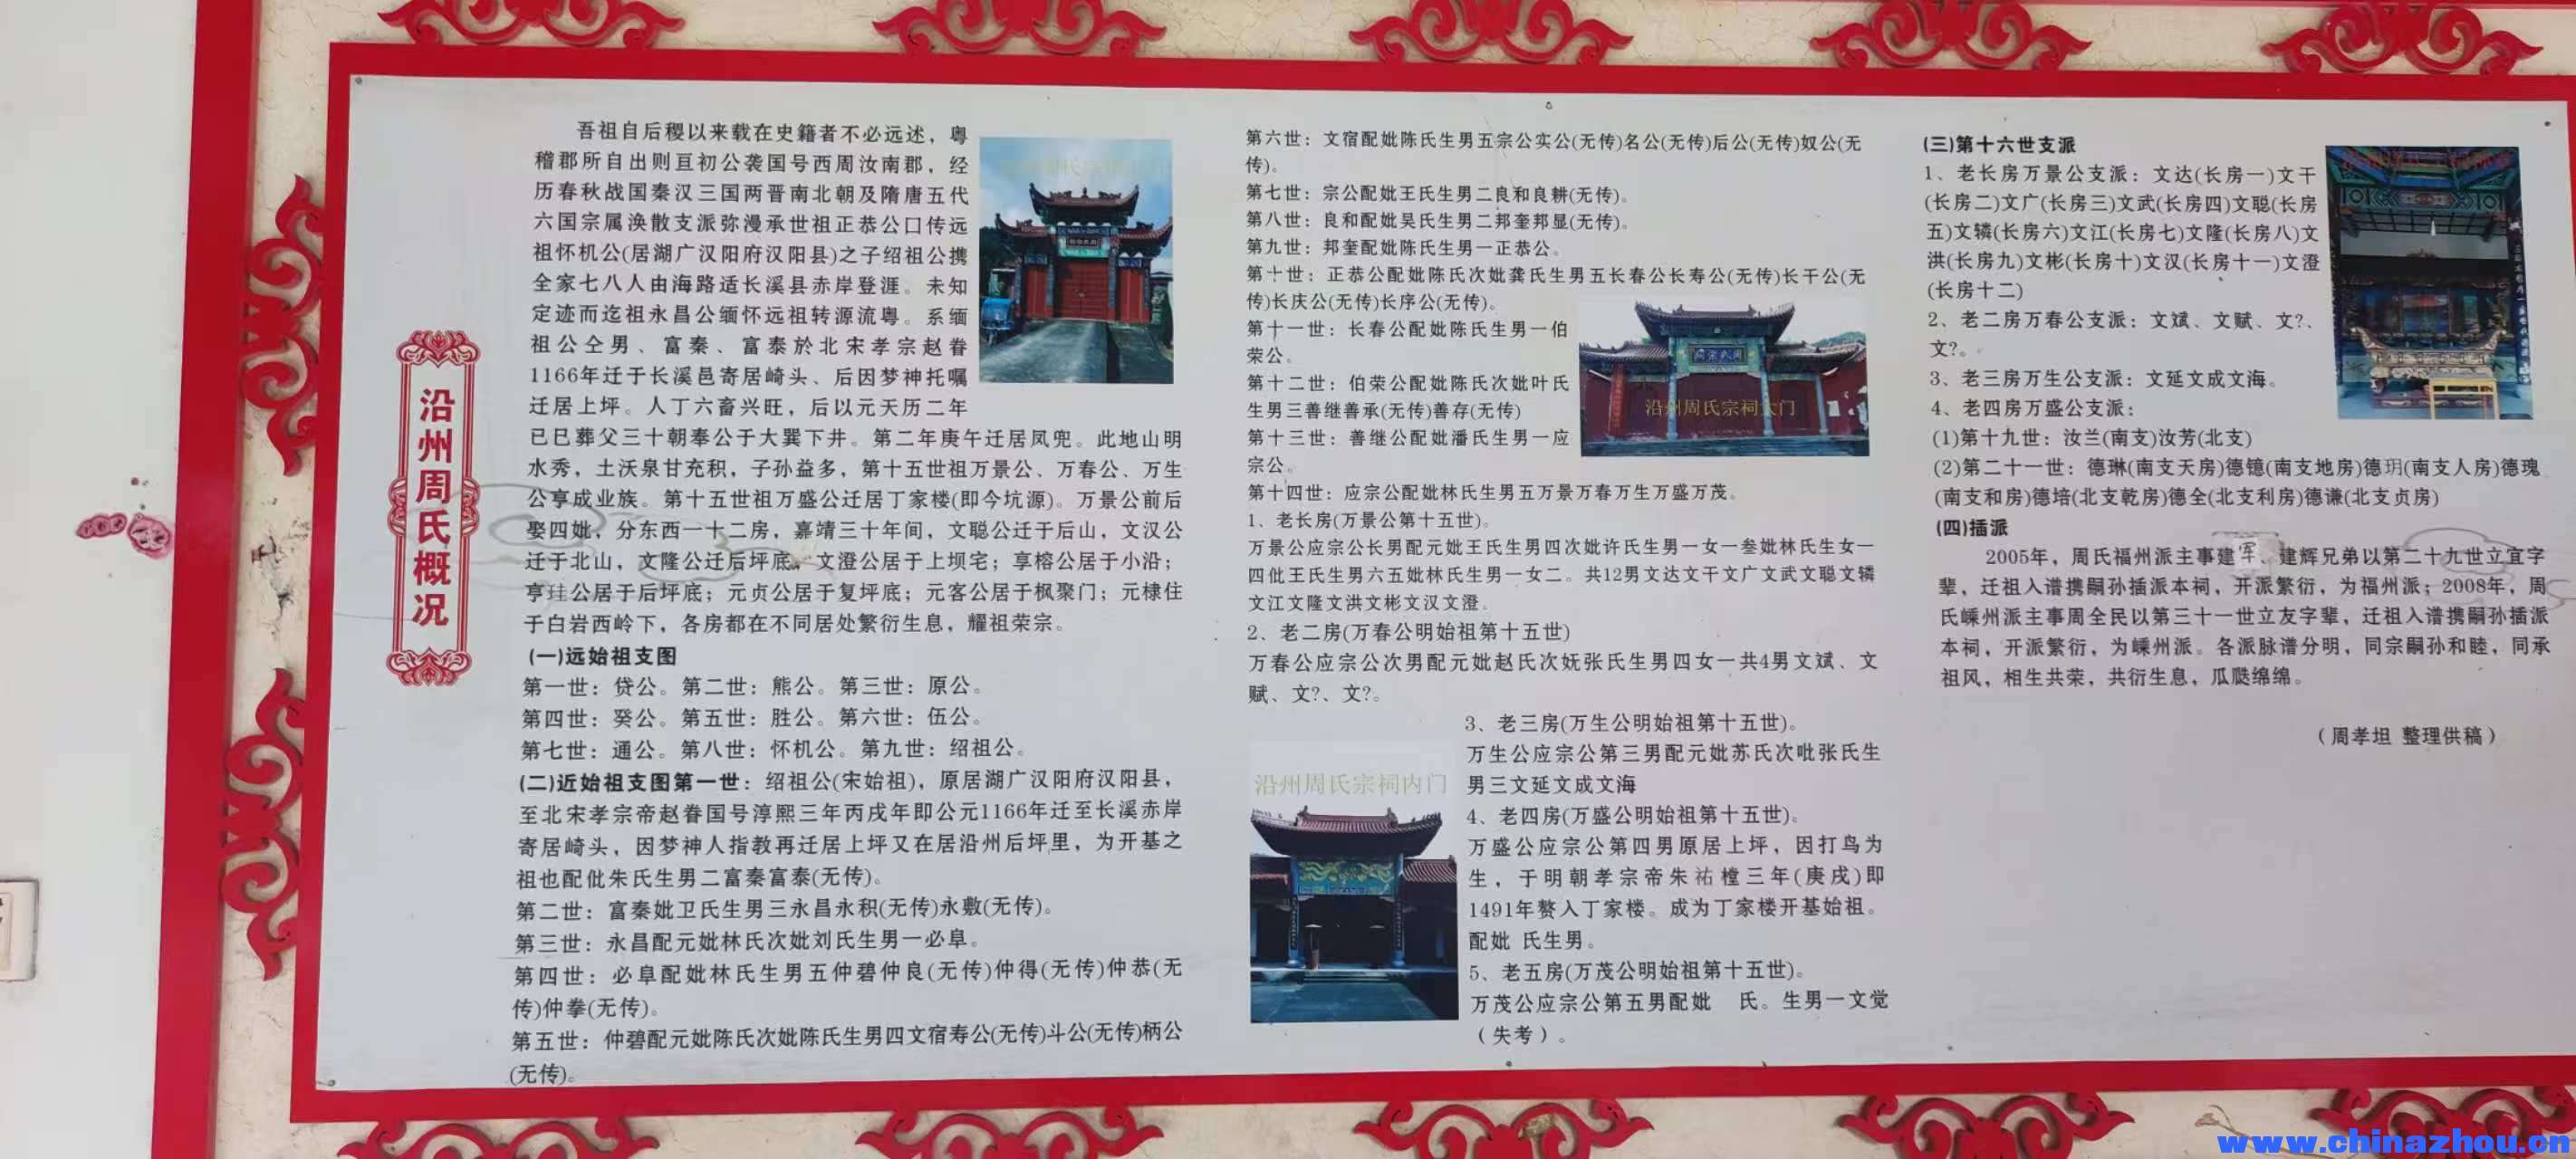 沿州周氏概况
吾祖自后稷以来载在史籍者不必远述，粤
稽郡所自出则亘初公袭国号西周汝南郡，经
历春秋战国秦汉三国两晋南北朝及隋唐五代
六国宗属涣散支派弥漫承世祖正恭公口传远
祖怀机公(居湖广汉阳府汉阳县)之子绍祖公携
全家七八人由海路适长溪县赤岸登涯。未知
定迹而迄祖永昌公缅怀远祖转源流粤。系缅
祖公仝男、富秦、富泰於北宋孝宗赵眷
1166年迁于长溪邑寄居崎头、后因梦神托嘱
迁居上坪。人丁六畜兴旺，后以元天历二年
已巳葬父三十朝奉公于大巽下井。第二年庚午迁居凤兜。此地山明
水秀，土沃泉甘充积，子孙益多，第十五世祖万景公、万春公、万生
公享成业族。第十五世祖万盛公迁居丁家楼(即今坑源)。万景公前后
娶四妣，分东西一十二房，嘉靖三十年间，文聪公迁于后山，文汉公
迁于北山，文隆公迁后坪底。文澄公居于上坝宅；享榕公居于小沿；
享珪公居于后坪底；元贞公居于复坪底；元客公居于枫聚门；元棣住
于白岩西岭下，各房都在不同居处繁衍生息，耀祖荣宗。
(一)远始祖支图
第一世：贷公。第二世：熊公。第三世：原公。
第四世：癸公。第五世：胜公。第六世：伍公。
第七世：通公。第八世：怀机公。第九世：绍祖公。
(二)近始祖支图第一世：绍祖公(宋始祖)，原居湖广汉阳府汉阳县，
至北宋孝宗帝赵眷国号淳熙三年丙戌年即公元1166年迁至长溪赤岸
寄居崎头，因梦神人指教再迁居上坪又在居沿州后坪里，为开基之
祖也配仳朱氏生男二富秦富泰(无传)。
第二世：富秦妣卫氏生男三永昌永积(无传)永敷(无传)。
第三世：永昌配元妣林氏次妣刘氏生男一必阜。
第四世：必阜配妣林氏生男五仲碧仲良(无传)仲得(无传)仲恭(无
传)仲拳(无传)。
第五世：仲碧配元妣陈氏次妣陈氏生男四文宿寿公(无传)斗公(无传)柄公
(无传)。
第六世：文宿配妣陈氏生男五宗公实公(无传)名公(无传)后公(无传)奴公(无
传)。
第七世：宗公配妣王氏生男二良和良耕(无传)。
第八世：良和配妣吴氏生男二邦奎邦显(无传)。
第九世：邦奎配妣陈氏生男一正恭公。
第十世：正恭公配妣陈氏次妣龚氏生男五长春公长寿公(无传)长干公(无
传)长庆公(无传)长序公(无传)。
第十一世：长春公配妣陈氏生男一伯
荣公。
第十二世：伯荣公配妣陈氏次妣叶氏
生男三善继善承(无传)善存(无传)
第十三世：善继公配妣潘氏生男一应
宗公。
周氏宗祠
沿州周氏宗祠大门
第十四世：应宗公配妣林氏生男五万景万春万生万盛万茂。
1、老长房(万景公第十五世)。
万景公应宗公长男配元妣王氏生男四次妣许氏生男一女一叁妣林氏生女一
四仳王氏生男六五妣林氏生男一女二。共12男文达文干文广文武文聪文辚
文江文隆文洪文彬文汉文澄。
2、老二房(万春公明始祖第十五世)
万春公应宗公次男配元妣赵氏次妩张氏生男四女一共4男文斌、文
赋、文?、文?。
沿州周氏宗祠内门
3、老三房(万生公明始祖第十五世)。
万生公应宗公第三男配元妣苏氏次吡张氏生
男三文延文成文海
4、老四房(万盛公明始祖第十五世)。
万盛公应宗公第四男原居上坪，因打鸟为
生，于明朝孝宗帝朱祐樘三年(庚戌)即
1491年赘入丁家楼。成为丁家楼开基始祖。
配妣 氏生男。
5、老五房(万茂公明始祖第十五世)。
万茂公应宗公第五男配妣 氏。生男一文觉
（失考）。
(三)第十六世支派
1、老长房万景公支派：文达(长房一)文干
(长房二)文广(长房三)文武(长房四)文聪(长房
五)文辚(长房六)文江(长房七)文隆(长房八)文
洪(长房九)文彬(长房十)文汉(长房十一)文澄
(长房十二)
2、老二房万春公支派：文斌、文赋、文?、
文?。
3、老三房万生公支派：文延文成文海。
4、老四房万盛公支派：
(1)第十九世：汝兰(南支)汝芳(北支)
(2)第二十一世：德琳(南支天房)德镱(南支地房)德玥(南支人房)德瑰
(南支和房)德培(北支乾房)德全(北支利房)德谦(北支贞房)
(四)插派
2005年，周氏福州派主事建军、建辉兄弟以第二十九世立宜字
辈，迁祖入谱携嗣孙插派本祠，开派繁衍，为福州派；2008年，周
氏嵊州派主事周全民以第三十一世立友字辈，迁祖入谱携嗣孙插派
本祠，开派繁衍，为嵊州派。各派脉谱分明，同宗嗣孙和睦，同承
祖风，相生共荣，共衍生息，瓜瓞绵绵。
（周孝坦 整理供稿）
www.chinazhou.cn